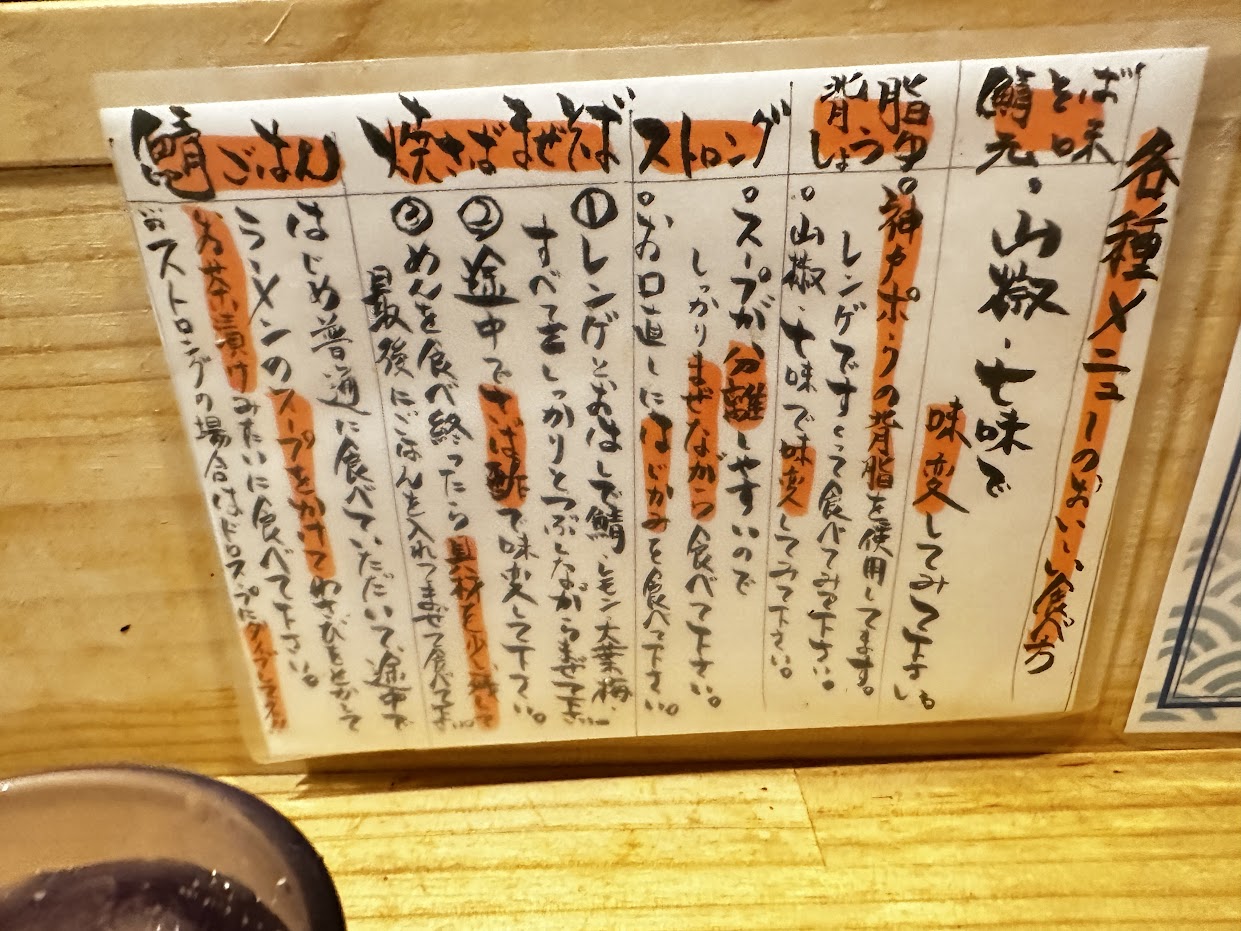 各種メニューのおいしい食べ方
鯖そば
元味
・山椒・七味で
味変してみて下さい。
背脂
しょう油
。神戸ポークの背脂を使用してます。
レンゲですくって食べてみて下さい。
。山椒・七味で味変してみて下さい。
ストロング
。スープが分離しやすいので
しっかりまぜながら食べて下さい。
。お口直しにはじかみを食べて下さい。
焼さばまぜそば
①レンゲとおはしで鯖・レモン・大葉・梅、
すべてをしっかりとつぶしながらまぜて下さい。
②途中でさば酢で味変して下さい。
③めんを食べ終ったら具材を少し残して
最後にごはんを入れてまぜて食べて下さい。
鯖ごはん
はじめ普通に食べていただいて、途中で
ラーメンのスープをかけてわさびをとかして
お茶漬けみたいに食べて下さい。
※ストロングの場合は